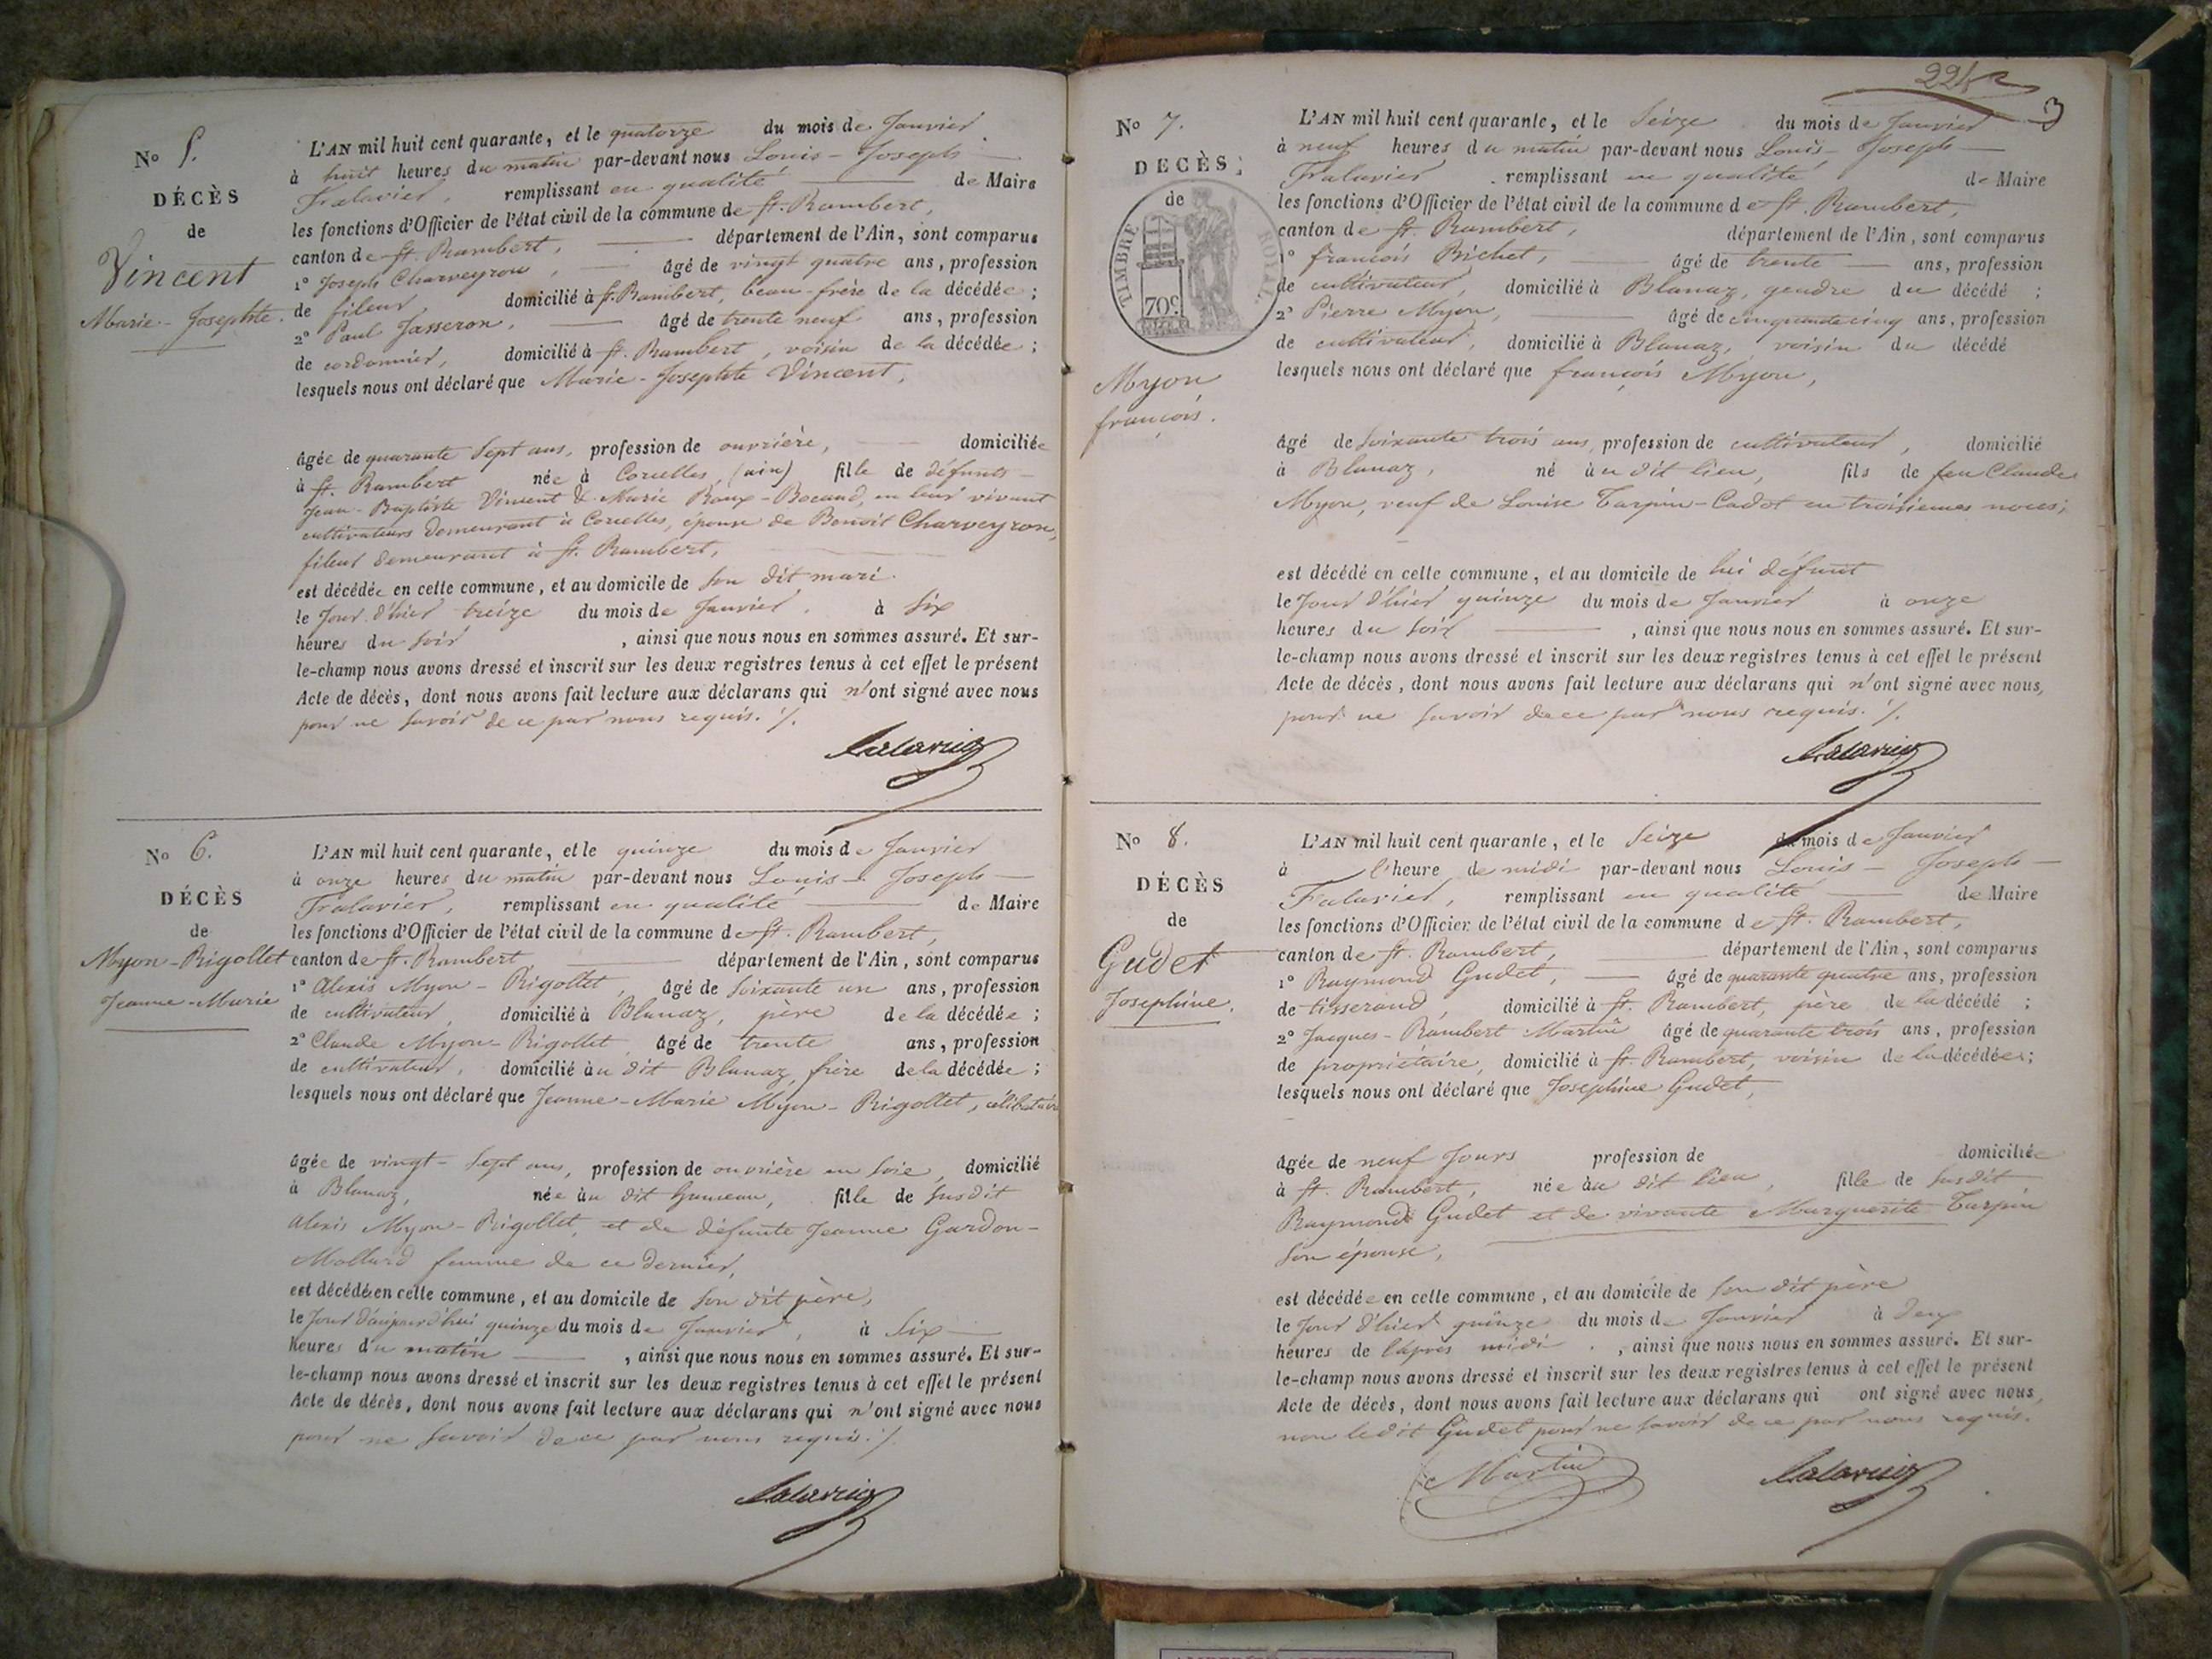 No 5.
DÉCÈS
de
Vincent
Marie-Josephte.
L'AN mil huit cent quarante, et le quatorze du mois de Janvier
à huit heures du matin par-devant nous Louis-Joseph
Falavier, remplissant en qualité de Maire
les fonctions d'Officier de l'état civil de la commune de St. Rambert,
canton de St. Rambert, département de l'Ain, sont comparus
1° Joseph Charveyron, âgé de vingt quatre ans, profession
de fileur, domicilié à St. Rambert, beau-frère de la décédée;
2° Paul Jasseron, âgé de trente neuf ans, profession
de cordonnier, domicilié à St. Rambert, voisin de la décédée;
lesquels nous ont déclaré que Marie-Josephte Vincent,
âgée de quarante sept ans, profession de ouvrière, domiciliée
à St. Rambert née à Corcelles, (ain) fille de défunts
Jean-Baptiste Vincent & Marie Roux-Bocaud, en leur vivant
cultivateurs demeurant à Corcelles, épouse de Benoit Charveyron,
fileur demeurant à St. Rambert,
est décédée en cette commune, et au domicile de son dit mari
le jour d'hier treize du mois de Janvier, à six
heures du soir, ainsi que nous nous en sommes assuré. Et sur-
le-champ nous avons dressé et inscrit sur les deux registres tenus à cet effet le présent
Acte de décès, dont nous avons fait lecture aux déclarans qui n'ont signé avec nous
pour ne savoir de ce par nous requis. /.
Falavier
No 6.
DÉCÈS
de
Myon-Rigollet
Jeanne-Marie
L'AN mil huit cent quarante, et le quinze du mois de Janvier
à onze heures du matin par-devant nous Louis-Joseph
Falavier, remplissant en qualité de Maire
les fonctions d'Officier de l'état civil de la commune de St. Rambert,
canton de St. Rambert département de l'Ain, sont comparus
1° Alexis Myon-Rigollet, âgé de soixante un ans, profession
de cultivateur, domicilié à Blanaz, père de la décédée;
2° Claude Myon-Rigollet âgé de trente ans, profession
de cultivateur, domicilié au dit Blanaz, frère de la décédée;
lesquels nous ont déclaré que Jeanne-Marie Myon-Rigollet, célibataire
âgée de vingt-sept ans, profession de ouvrière en soie, domicilié
à Blanaz, née au dit hameau, fille de susdit
Alexis Myon-Rigollet, et de défunte Jeanne Gardon-
Mollard femme de ce dernier,
est décédée en cette commune, et au domicile de son dit père,
le jour d'aujourd'hui quinze du mois de Janvier, à six
heures du matin, ainsi que nous nous en sommes assuré. Et sur-
le-champ nous avons dressé et inscrit sur les deux registres tenus à cet effet le présent
Acte de décès, dont nous avons fait lecture aux déclarans qui n'ont signé avec nous
pour ne savoir de ce par nous requis. /.
Falavier
3
No 7.
DÉCÈS
de
TIMBRE ROYAL
70c
Myon
françois.
L'AN mil huit cent quarante, et le seize du mois de Janvier
à neuf heures du matin par-devant nous Louis-Joseph
Falavier remplissant en qualité de Maire
les fonctions d'Officier de l'état civil de la commune de St. Rambert,
canton de St. Rambert, département de l'Ain, sont comparus
1° françois Bichet, âgé de trente ans, profession
de cultivateur, domicilié à Blanaz, gendre du décédé;
2° Pierre Myon, âgé de cinquante cinq ans, profession
de cultivateur, domicilié à Blanaz, voisin du décédé
lesquels nous ont déclaré que françois Myon,
âgé de soixante trois ans, profession de cultivateur, domicilié
à Blanaz, né au dit lieu, fils de feu Claude
Myon, veuf de Louise Tarpin-Cadot en troisiemes noces;
est décédé en cette commune, et au domicile de lui défunt
le jour d'hier quinze du mois de Janvier à onze
heures du soir, ainsi que nous nous en sommes assuré. Et sur-
le-champ nous avons dressé et inscrit sur les deux registres tenus à cet effet le présent
Acte de décès, dont nous avons fait lecture aux déclarans qui n'ont signé avec nous,
pour ne savoir de ce par nous requis. /.
Falavier
No 8.
DÉCÈS
de
Gudet
Josephine.
L'AN mil huit cent quarante, et le seize du mois de Janvier
à l'heure de midi par-devant nous Louis-Joseph
Falavier, remplissant en qualité de Maire
les fonctions d'Officier de l'état civil de la commune de St. Rambert,
canton de St. Rambert, département de l'Ain, sont comparus
1° Raymond Gudet, âgé de quarante quatre ans, profession
de tisserand, domicilié à St. Rambert, père de la décédé;
2° Jacques-Rambert Martin âgé de quarante trois ans, profession
de propriétaire, domicilié à St. Rambert, voisin de la décédée;
lesquels nous ont déclaré que Josephine Gudet,
âgée de neuf jours profession de domiciliée
à St. Rambert, née au dit lieu, fille de susdit
Raymond Gudet et de vivante Marguerite Tarpin
son épouse,
est décédée en cette commune, et au domicile de son dit père
le jour d'hier quinze du mois de Janvier à deux
heures de l'après midi, ainsi que nous nous en sommes assuré. Et sur-
le-champ nous avons dressé et inscrit sur les deux registres tenus à cet effet le présent
Acte de décès, dont nous avons fait lecture aux déclarans qui ont signé avec nous,
non ledit Gudet pour ne savoir de ce par nous requis.
Martin Falavier